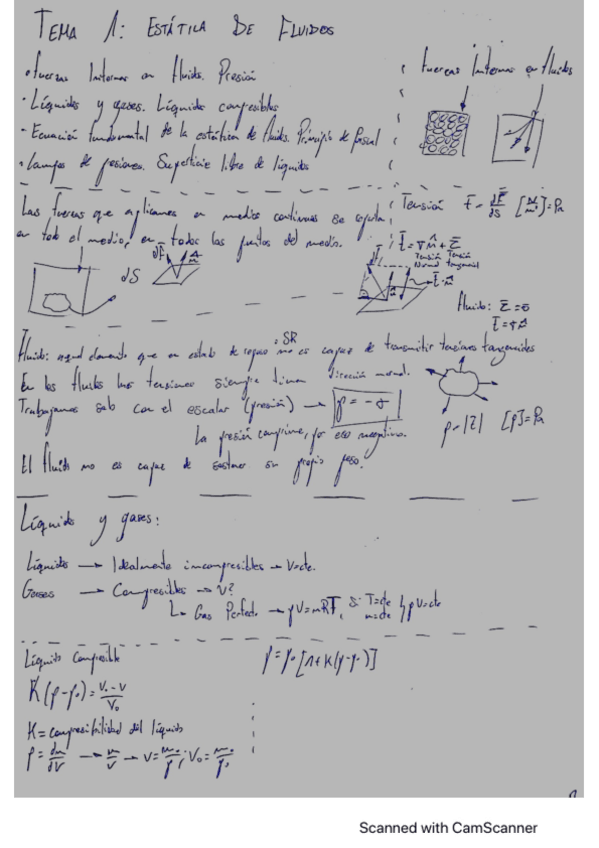 TEMA 1: ESTÁTICA DE FLUIDOS
• Fuerzas Internas en fluids. Presión
• Líquidos y gases. Líquidos compresibles
• Ecuación fundamental de la estática de fluids. Principio de Pascal
• Campos de presiones. Superficie libre de líquidos
Fuerzas Internas en fluidos
Las fuerzas que aplicamos en medios continuos se
en todo el medio, en todos los puntos del medio.
dS
Tensión
Tensión Tensión
Normal tangencial
Fluido:
Fluido: aquel elemento que en estado de reposo no es capaz de transmitir tensiones tangenciales
SR
En los fluids las tensiones siempre tienen dirección normal.
Trabajamos solo con el escalar (presión) → p = -σ
La presión comprime, por eso negativo.
p = |τ| [p] = Pa
El fluido no es capaz de sostener su propio peso.
Líquidos y gases:
Líquidos → Idealmente incompresibles → V=cte.
Gases → Compresibles → V?
Gas Perfecto → pV=mRT, si T=cte m=cte pV=cte
Líquido Compresible
K(p-p₀) = V₀-V / V₀
K = compresibilidad del líquido
ρ = dm/dV → m/V → V = m₀/ρ, V₀ = m₀/ρ₀
ρ = ρ₀ [1+K(p-p₀)]
Scanned with CamScanner